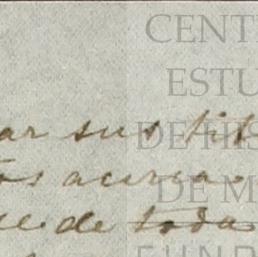 CENT
ESTU
DE HIS
DE M
FUND
ar sus tit
os acerca
se de todas